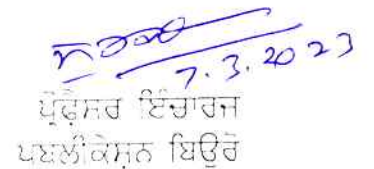 7.3.2023
ਪ੍ਰੋਫ਼ੈਸਰ ਇੰਚਾਰਜ
ਪਬਲੀਕੇਸ਼ਨ ਬਿਊਰੋ